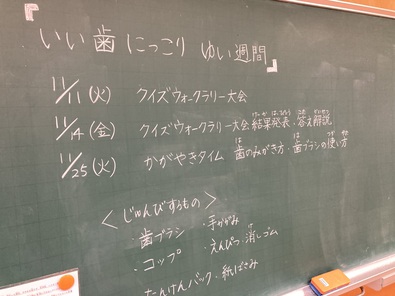 『いい歯にっこり ゆい週間』
11/11(火) クイズウォークラリー大会
11/14(金) クイズウォークラリー大会結果発表・答え解説
11/25(火) かがやきタイム 歯のみがき方・歯ブラシの使い方
<じゅんびするもの>
・歯ブラシ ・手かがみ
・コップ ・えんぴつ・消しゴム
たんけんバック・紙ばさみ